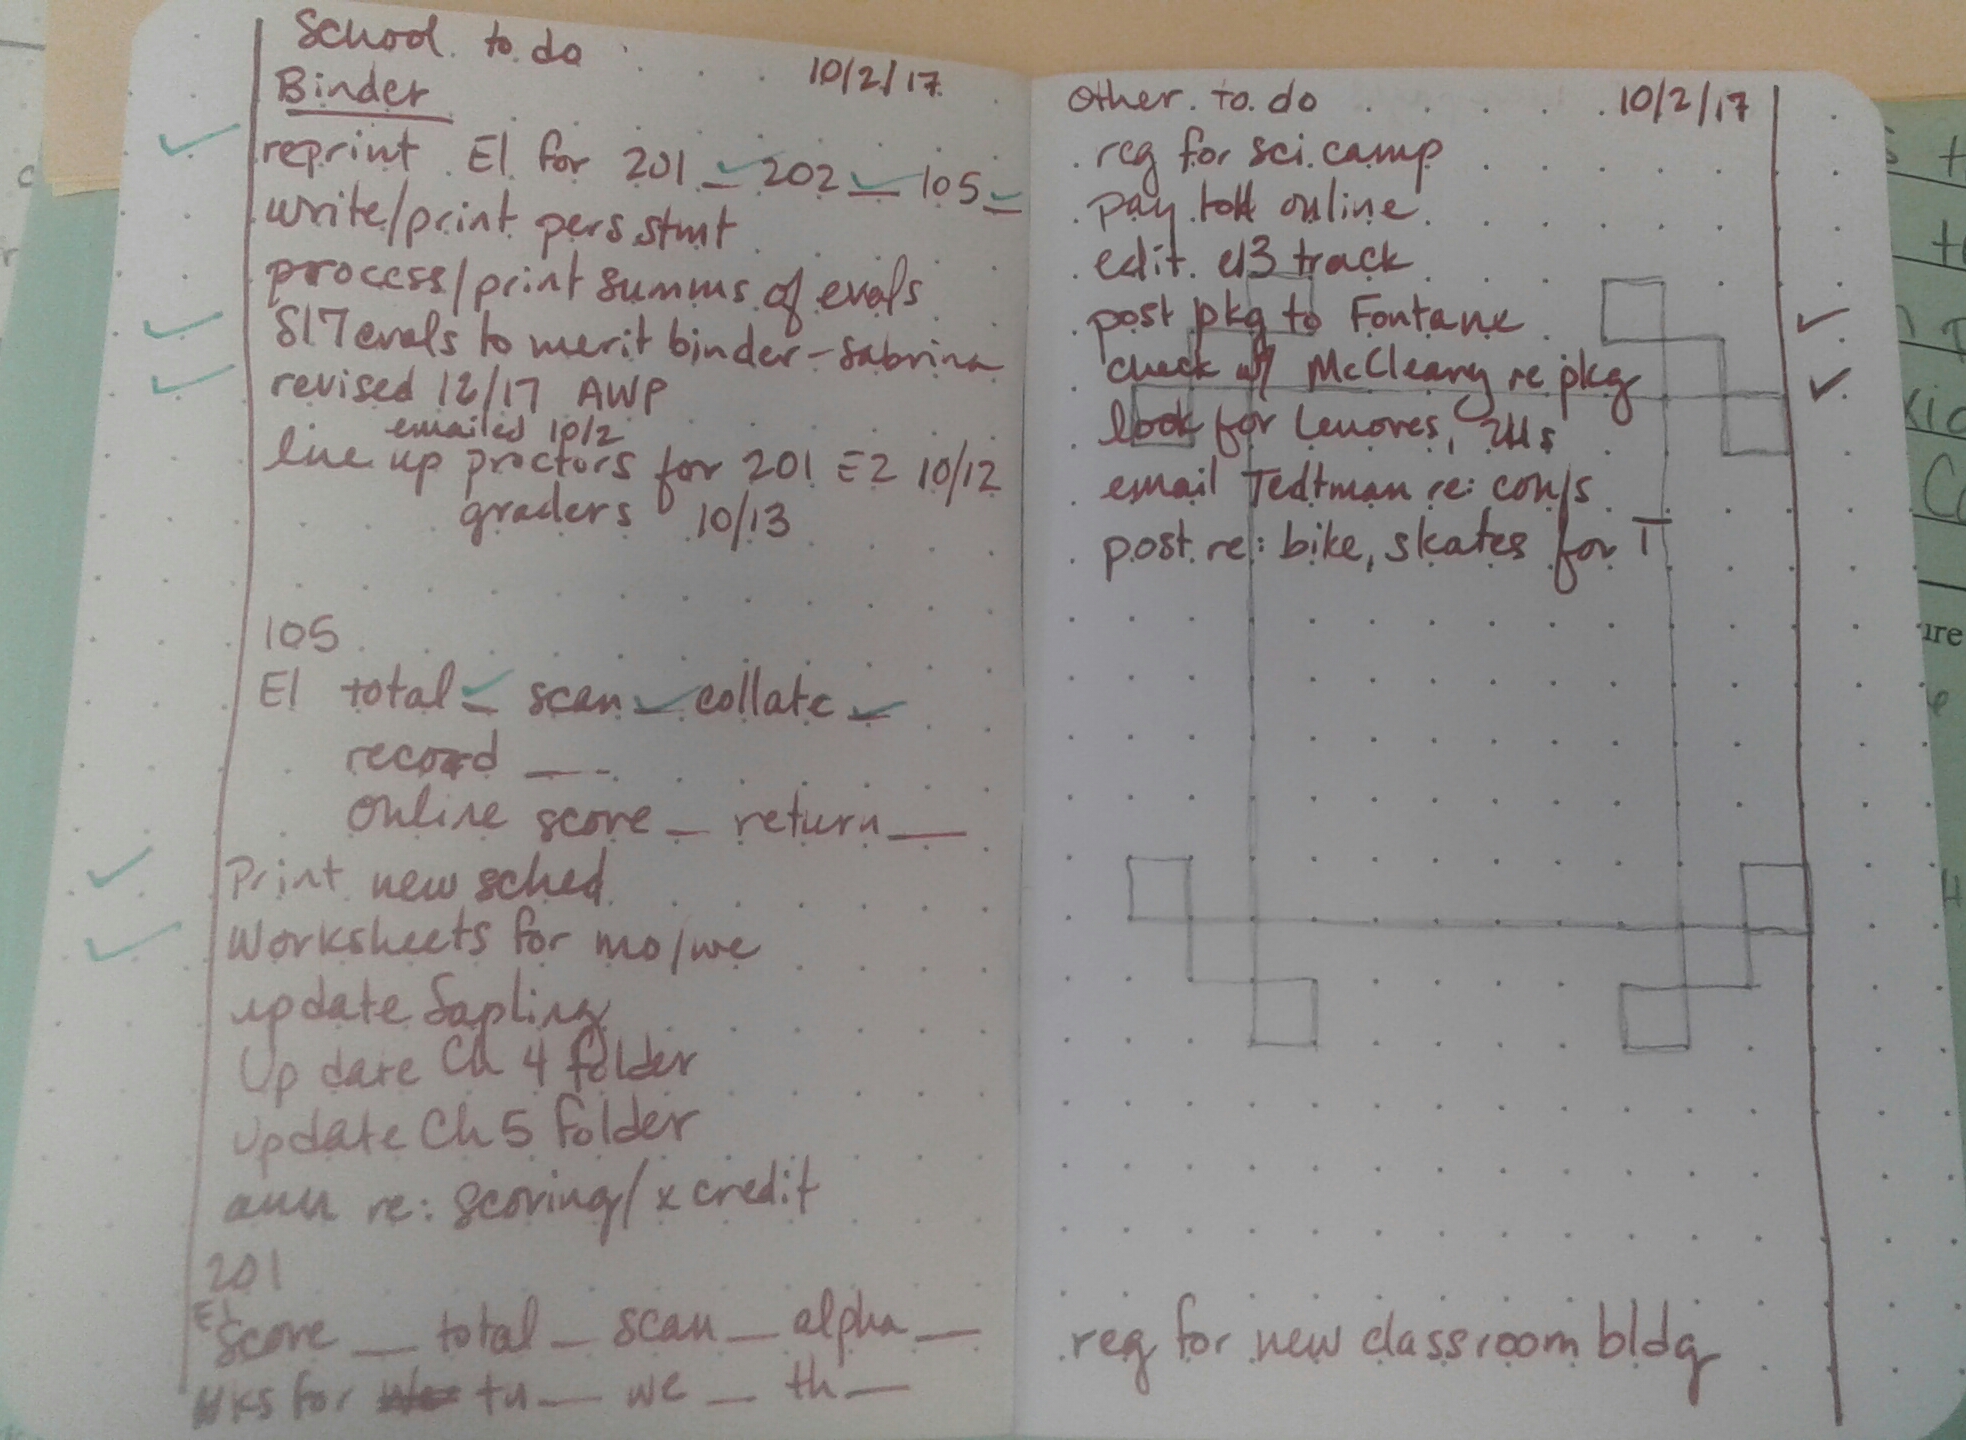 School to do 10/2/17
Binder
reprint E1 for 201 ✓ 202 ✓ 105 ✓
write/print pers stmt
process/print summs of evals
S17 evals to merit binder - Sabrina
revised 12/17 AWP
emailed 10/2
line up proctors for 201 E2 10/12
graders 10/13
105
E1 total ✓ scan ✓ collate ✓
record __
online score _ return __
Print new sched
Worksheets for mo/we
update Sapling
Update Ch 4 folder
Update Ch 5 folder
ann re: scoring/x credit
201
E1
Score __ total _ scan _ alpha __
wks for tu __ we _ th __
Other to do 10/2/17
reg for sci camp
pay toll online
edit e13 track
post pkg to Fontane ✓
check w/ McCleary re pkg ✓
look for Lenores,
email Tedtman re:
post re: bike, skates for T
reg for new classroom bldg